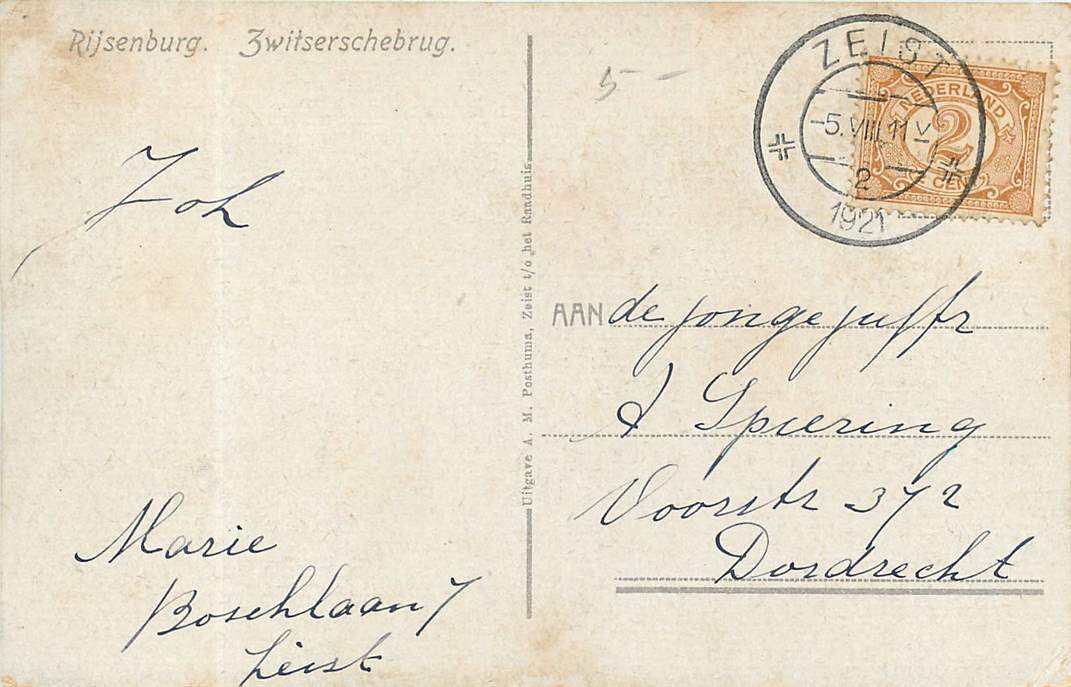 Rijsenburg. Zwitserschebrug.
5-
ZEIST
-5.VIII.11-V
2
1921
NEDERLAND
2
CENT
Joh
Uitgave A. M. Posthuma, Zeist t/o het Raadhuis
AAN de jongejuffr
A Spiering
Voorstr 372
Dordrecht
Marie
Boschlaan 7
Zeist